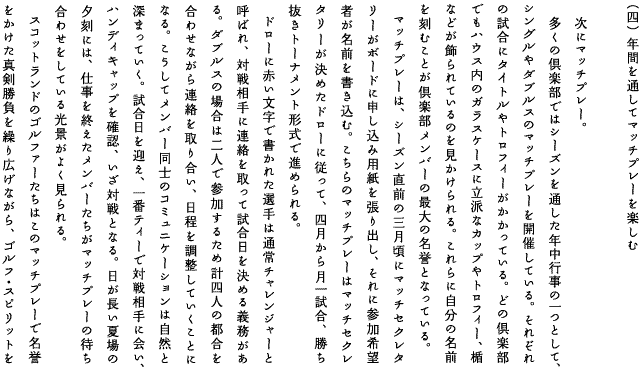 （四）年間を通してマッチプレーを楽しむ
次にマッチプレー。
多くの倶楽部ではシーズンを通した年中行事の一つとして、
シングルやダブルスのマッチプレーを開催している。それぞれ
の試合にタイトルやトロフィーがかかっている。どの倶楽部
でもハウス内のガラスケースに立派なカップやトロフィー、楯
などが飾られているのを見かけられる。これらに自分の名前
を刻むことが倶楽部メンバーの最大の名誉となっている。
マッチプレーは、シーズン直前の三月頃にマッチセクレタ
リーがボードに申し込み用紙を張り出し、それに参加希望
者が名前を書き込む。こちらのマッチプレーはマッチセクレ
タリーが決めたドローに従って、四月から月一試合、勝ち
抜きトーナメント形式で進められる。
ドローに赤い文字で書かれた選手は通常チャレンジャーと
呼ばれ、対戦相手に連絡を取って試合日を決める義務があ
る。ダブルスの場合は二人で参加するため計四人の都合を
合わせながら連絡を取り合い、日程を調整していくことに
なる。こうしてメンバー同士のコミュニケーションは自然と
深まっていく。試合日を迎え、一番ティーで対戦相手に会い、
ハンディキャップを確認、いざ対戦となる。日が長い夏場の
夕刻には、仕事を終えたメンバーたちがマッチプレーの待ち
合わせをしている光景がよく見られる。
スコットランドのゴルファーたちはこのマッチプレーで名誉
をかけた真剣勝負を繰り広げながら、ゴルフ・スピリットを